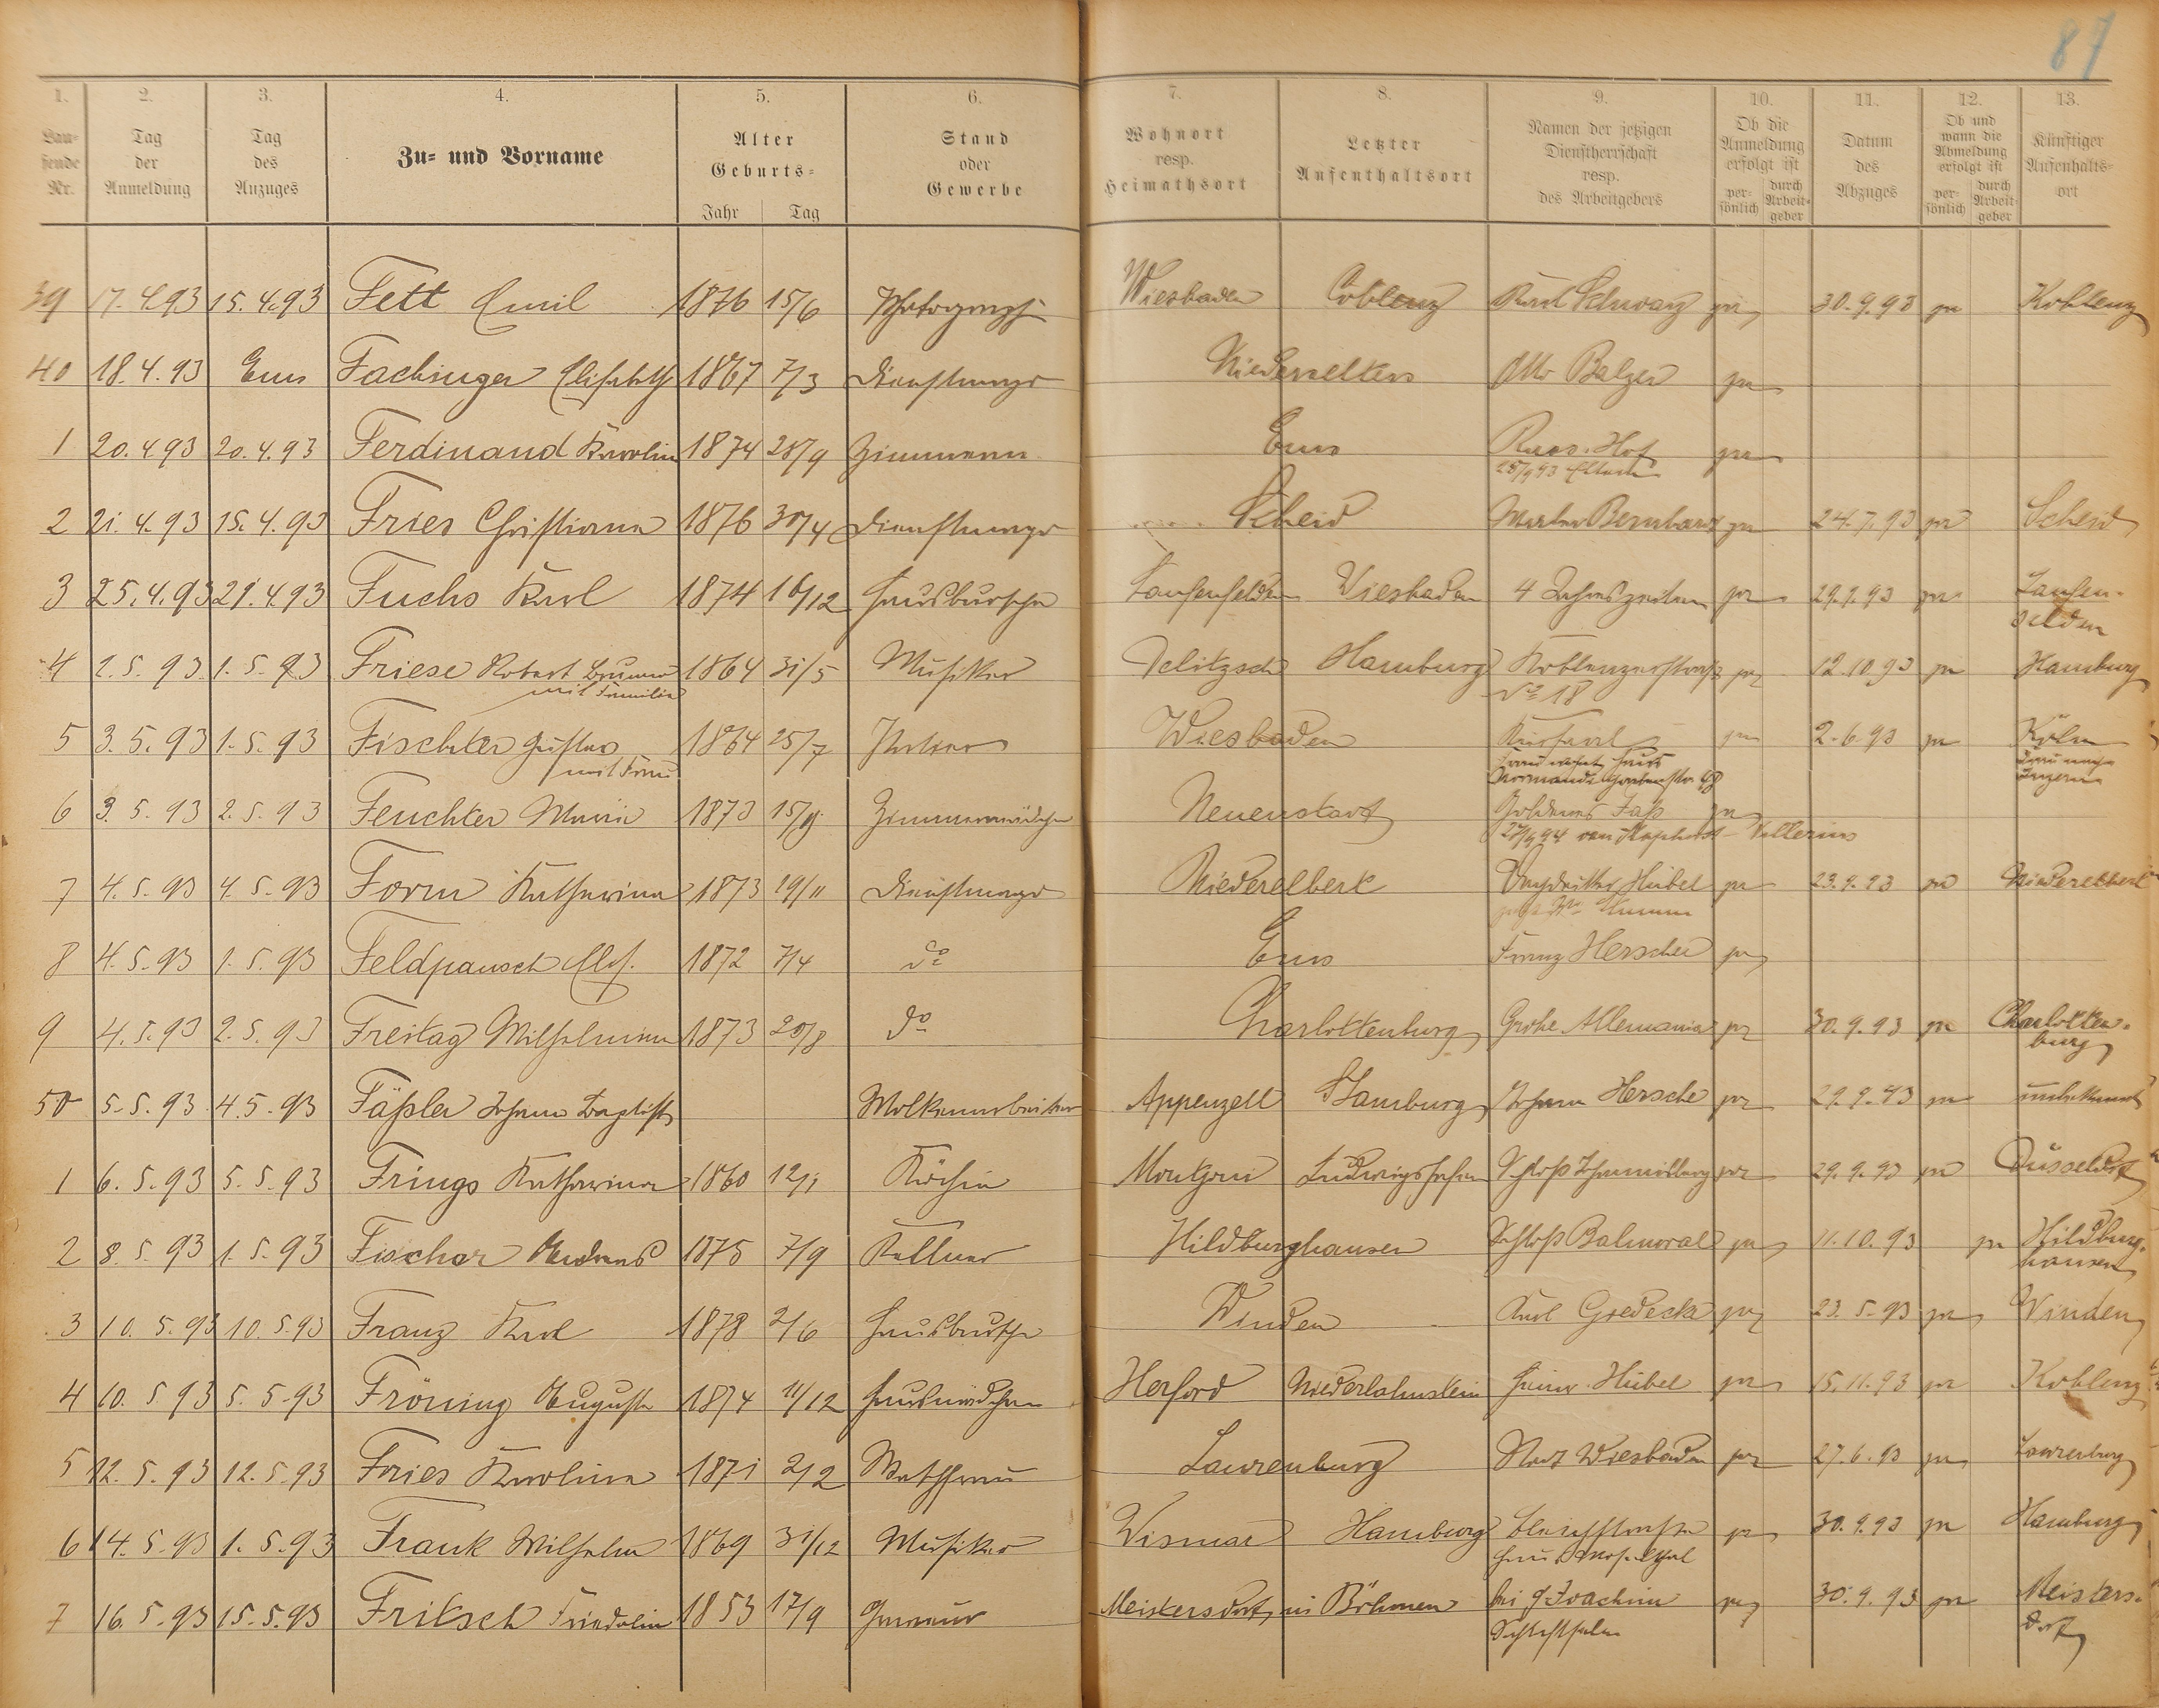 87
1. 2. 3. 4. 5. 6. 7. 8. 9. 10. 11. 12. 13.
Lau-fende Nr. Tag der Anmeldung Tag des Anzuges Zu- und Vorname Alter Geburts- Jahr Tag Stand oder Gewerbe Wohnort resp. Heimathsort Letzter Aufenthaltsort Namen der jetzigen Dienstherrschaft resp. des Arbeitgebers Ob die Anmeldung erfolgt ist per-sönlich durch Arbeit-geber Datum des Abzuges Ob und wann die Abmeldung erfolgt ist per-sönlich durch Arbeit-geber Künftiger Aufenthalts-ort
39 17. 4. 93 15. 4. 93 Fett Emil 1876 15/6 Photograph Wiesbaden Coblenz Karl Schwarz 30. 9. 93 Koblenz
40 18. 4. 93 Ems Fachinger Elisabeth 1867 7/3 Dienstmagd Niederselters Otto Balzer
1 20. 4. 93 20. 4. 93 Ferdinand Karolin 1874 28/9 Zimmerm Ems Russ. Hof
2 21. 4. 93 15. 4. 93 Fries Christiana 1876 30/4 Dienstmagd Scheid Bernhard 24. 7. 93 Scheid
3 25. 4. 93 21. 4. 93 Fuchs Karl 1874 16/12 Hausbursche Laufenselden Wiesbaden 4 Jahreszeiten 29. 9. 93 Laufen-
selden
4 2. 5. 93 1. 5. 93 Friese Robert Bruno 1864 31/5 Musiker Delitzsch Hamburg Koblenzerstraße 12. 10. 93 Hamburg
mit Familie No 18
5 3. 5. 93 1. 5. 93 Fischler Gustav 1864 25/7 Portier Wiesbaden Kursaal 2. 6. 93 Köln
mit Frau
6 3. 5. 93 2. 5. 93 Feuchter Maria 1873 Zimmermädchen Neuenstadt Goldenes Faß
7 4. 5. 93 4. 5. 93 Form Katharina 1873 19/11 Dienstmagd Niederelbert Hübel 23. 9. 93 Niederelbert
8 4. 5. 93 1. 5. 93 Feldpausch Elis. 1872 7/4 do Ems Franz Herscher
9 4. 5. 93 2. 5. 93 Freitag Wilhelmine 1873 20/8 do Charlottenburg Grohe Allemania 30. 9. 93 Charlotten-
burg
50 5. 5. 93 4. 5. 93 Fäßler Johann Baptist Molkenarbeiter Appenzell Hamburg Johann Hersche 29. 9. 93 unbekannt
1 6. 5. 93 5. 5. 93 Frings Katharina 1860 12/1 Köchin Montjoui Ludwigshafen Schloß Johannisberg 29. 9. 93 Düsseldorf
2 8. 5. 93 1. 5. 93 Fischer Andreas 1875 7/9 Kellner Hildburghausen Schloß Balmoral 11. 10. 93 Hildburg-
hausen
3 10. 5. 93 10. 5. 93 Franz Karl 1878 2/6 Hausbursche Winden Karl Goedecke 23. 5. 93 Winden
4 10. 5. 93 5. 5. 93 Fröning Auguste 1874 11/12 Hausmädchen Herford Niederlahnstein Heinr. Hübel 15. 11. 93 Koblenz
5 12. 5. 93 12. 5. 93 Fries Karolina 1871 2/2 Waschfrau Laurenburg Stadt Wiesbaden 27. 6. 93 Laurenburg
6 14. 5. 93 1. 5. 93 Frank Wilhelm 1869 31/12 Musiker Wismar Hamburg Bleichstraße 30. 9. 93 Hamburg
Haus Moselthal
7 16. 5. 93 15. 5. 93 Fritsch Fridolin 1853 17/9 Graveur Meistersdorf in Böhmen bei J. Joachim 30. 9. 93 Meisters-
dorf